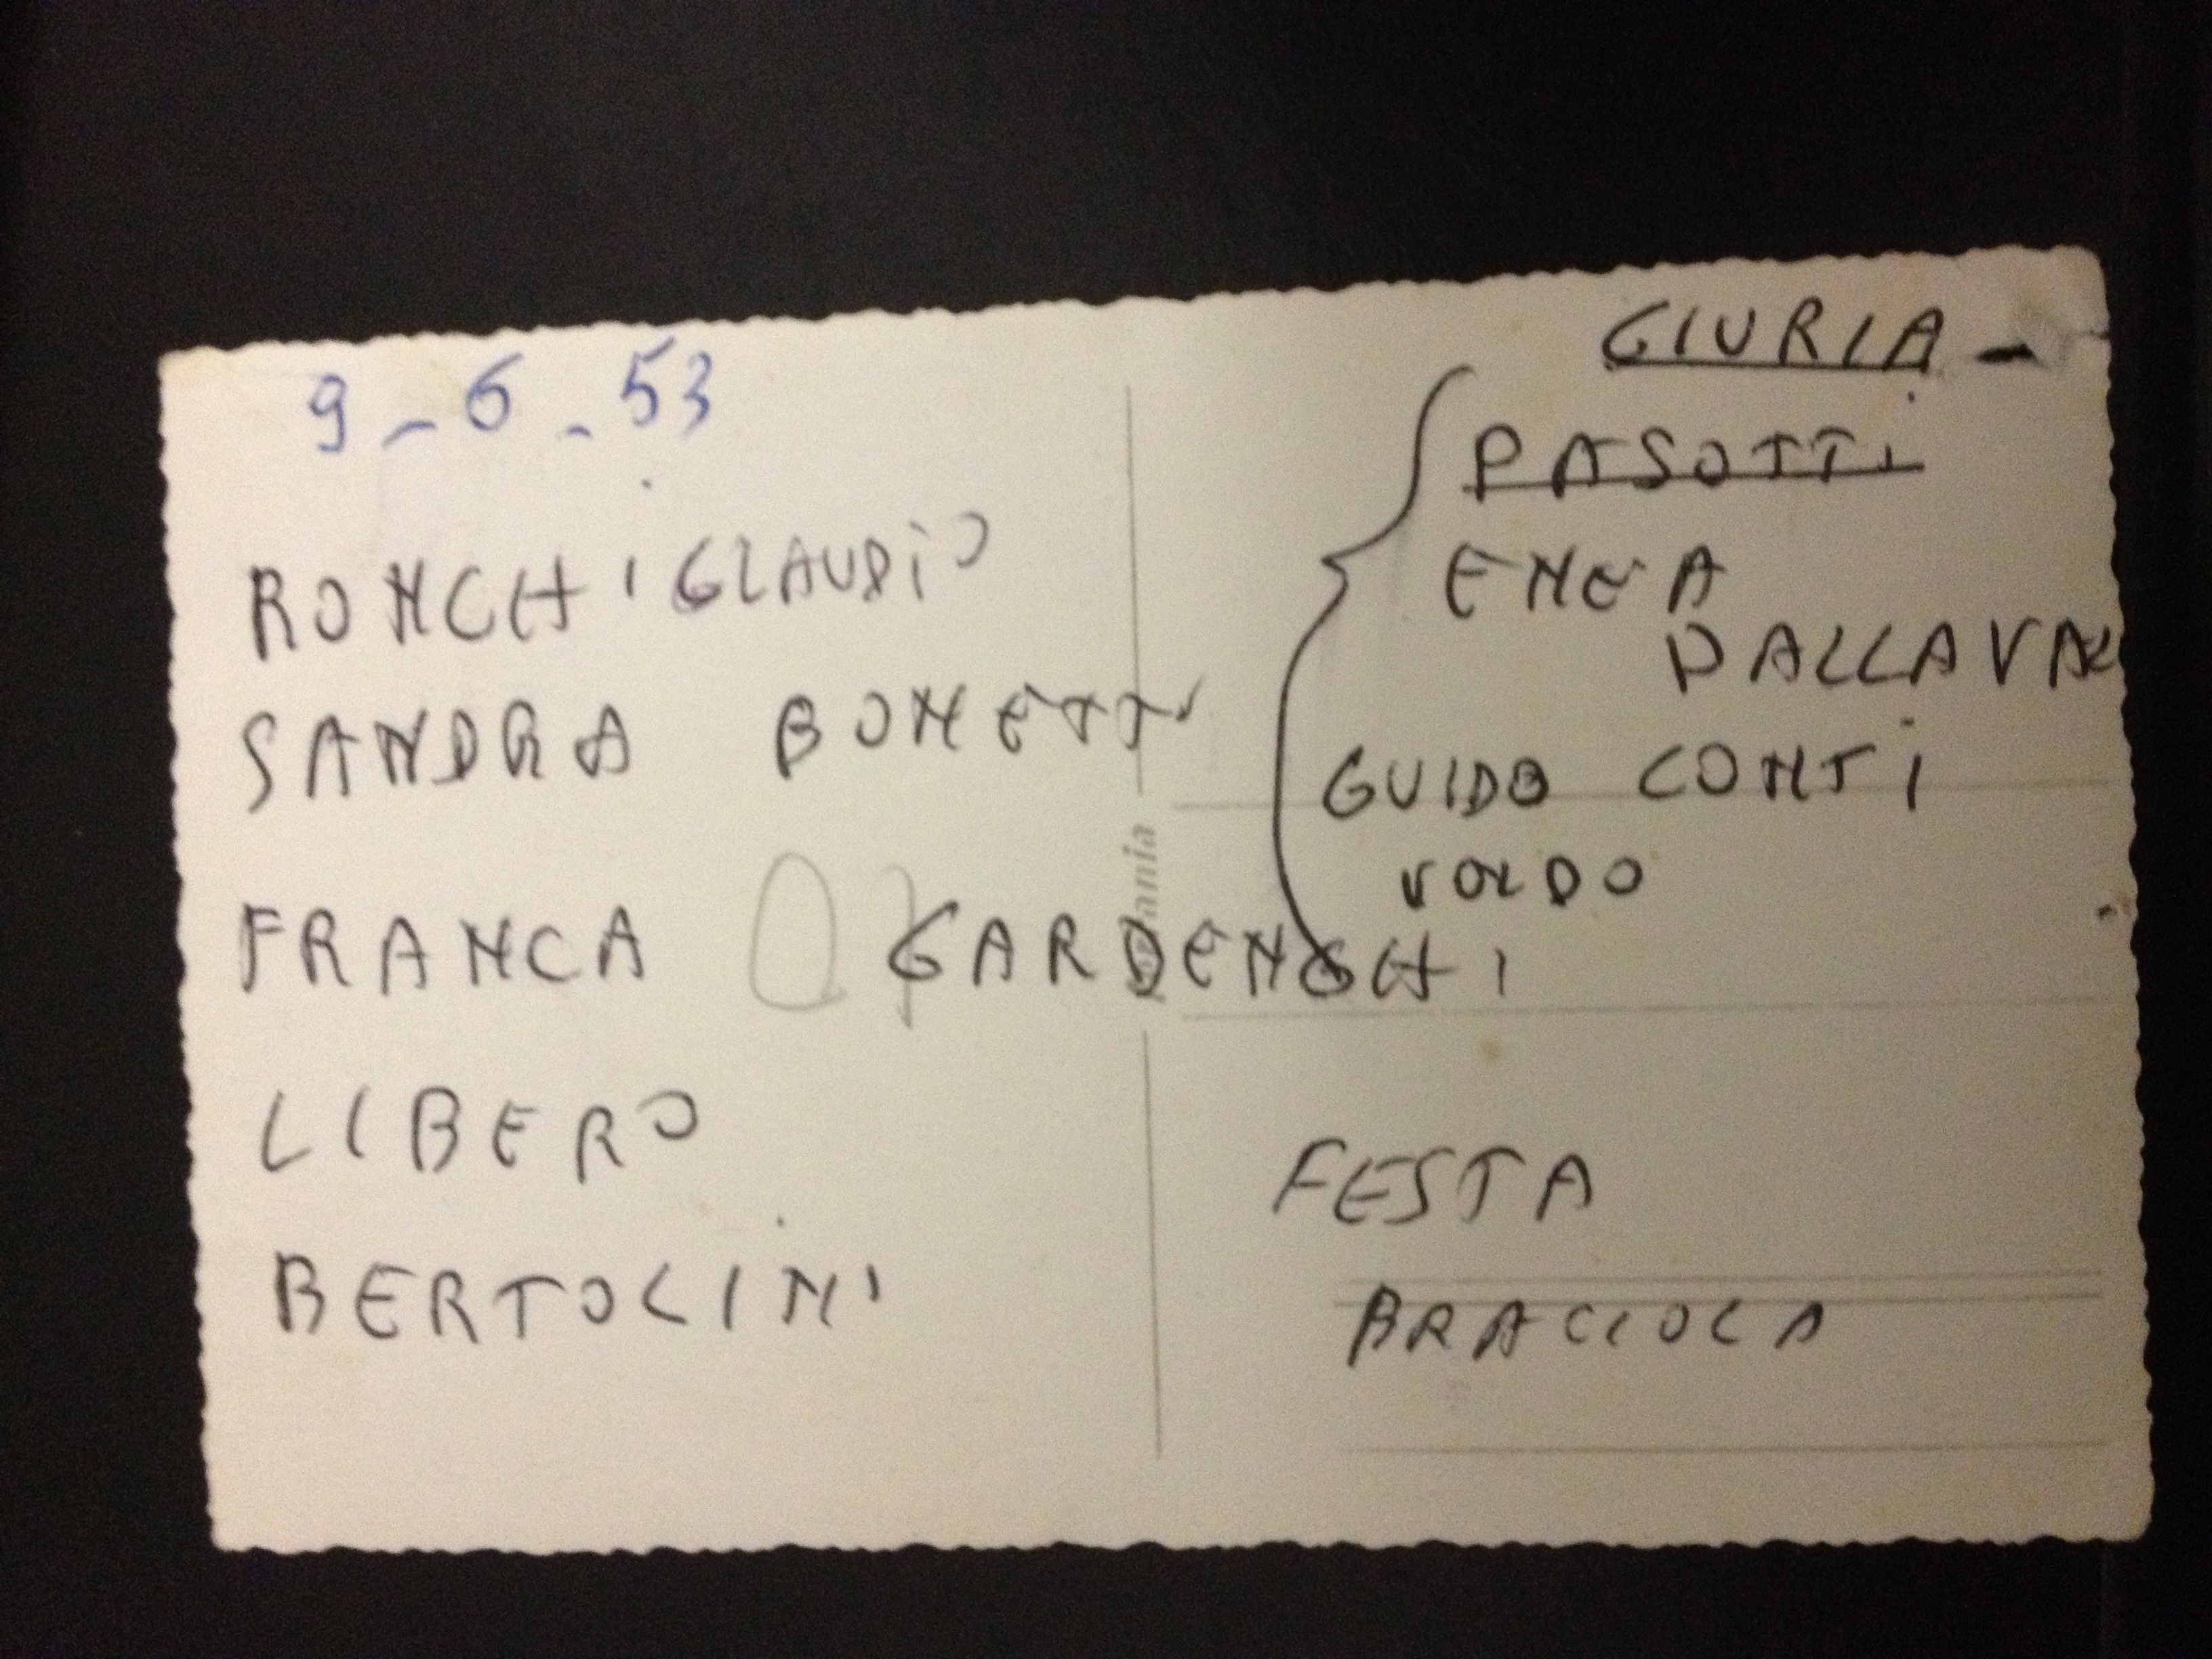 9-6-53
RONCHI CLAUDIO
SANDRA BONETTI
FRANCA GARDENGHI
LIBERO
BERTOLINI
GIURIA -
PASOTTI
ENEA
DALLAVAL
GUIDO CONTI
FESTA
BRACIOLA